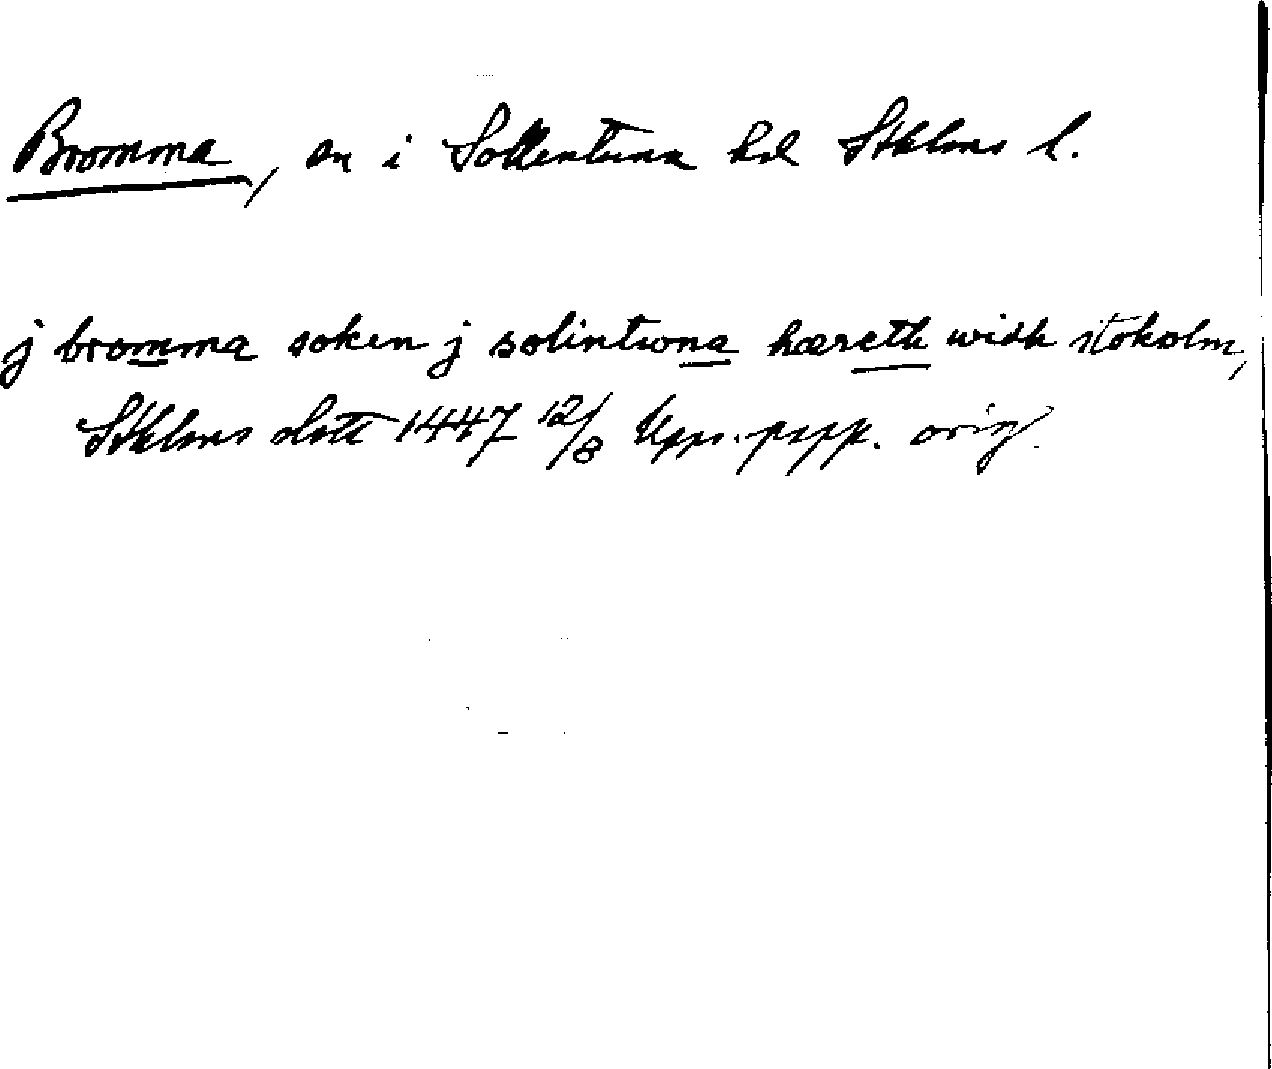 Bromma, sn i Sollentuna hd Sthlms l.
j bromma soken j solintwna hæreth widh stokolm,
Sthlms slott 1447 12/8 Upps. papp. orig.